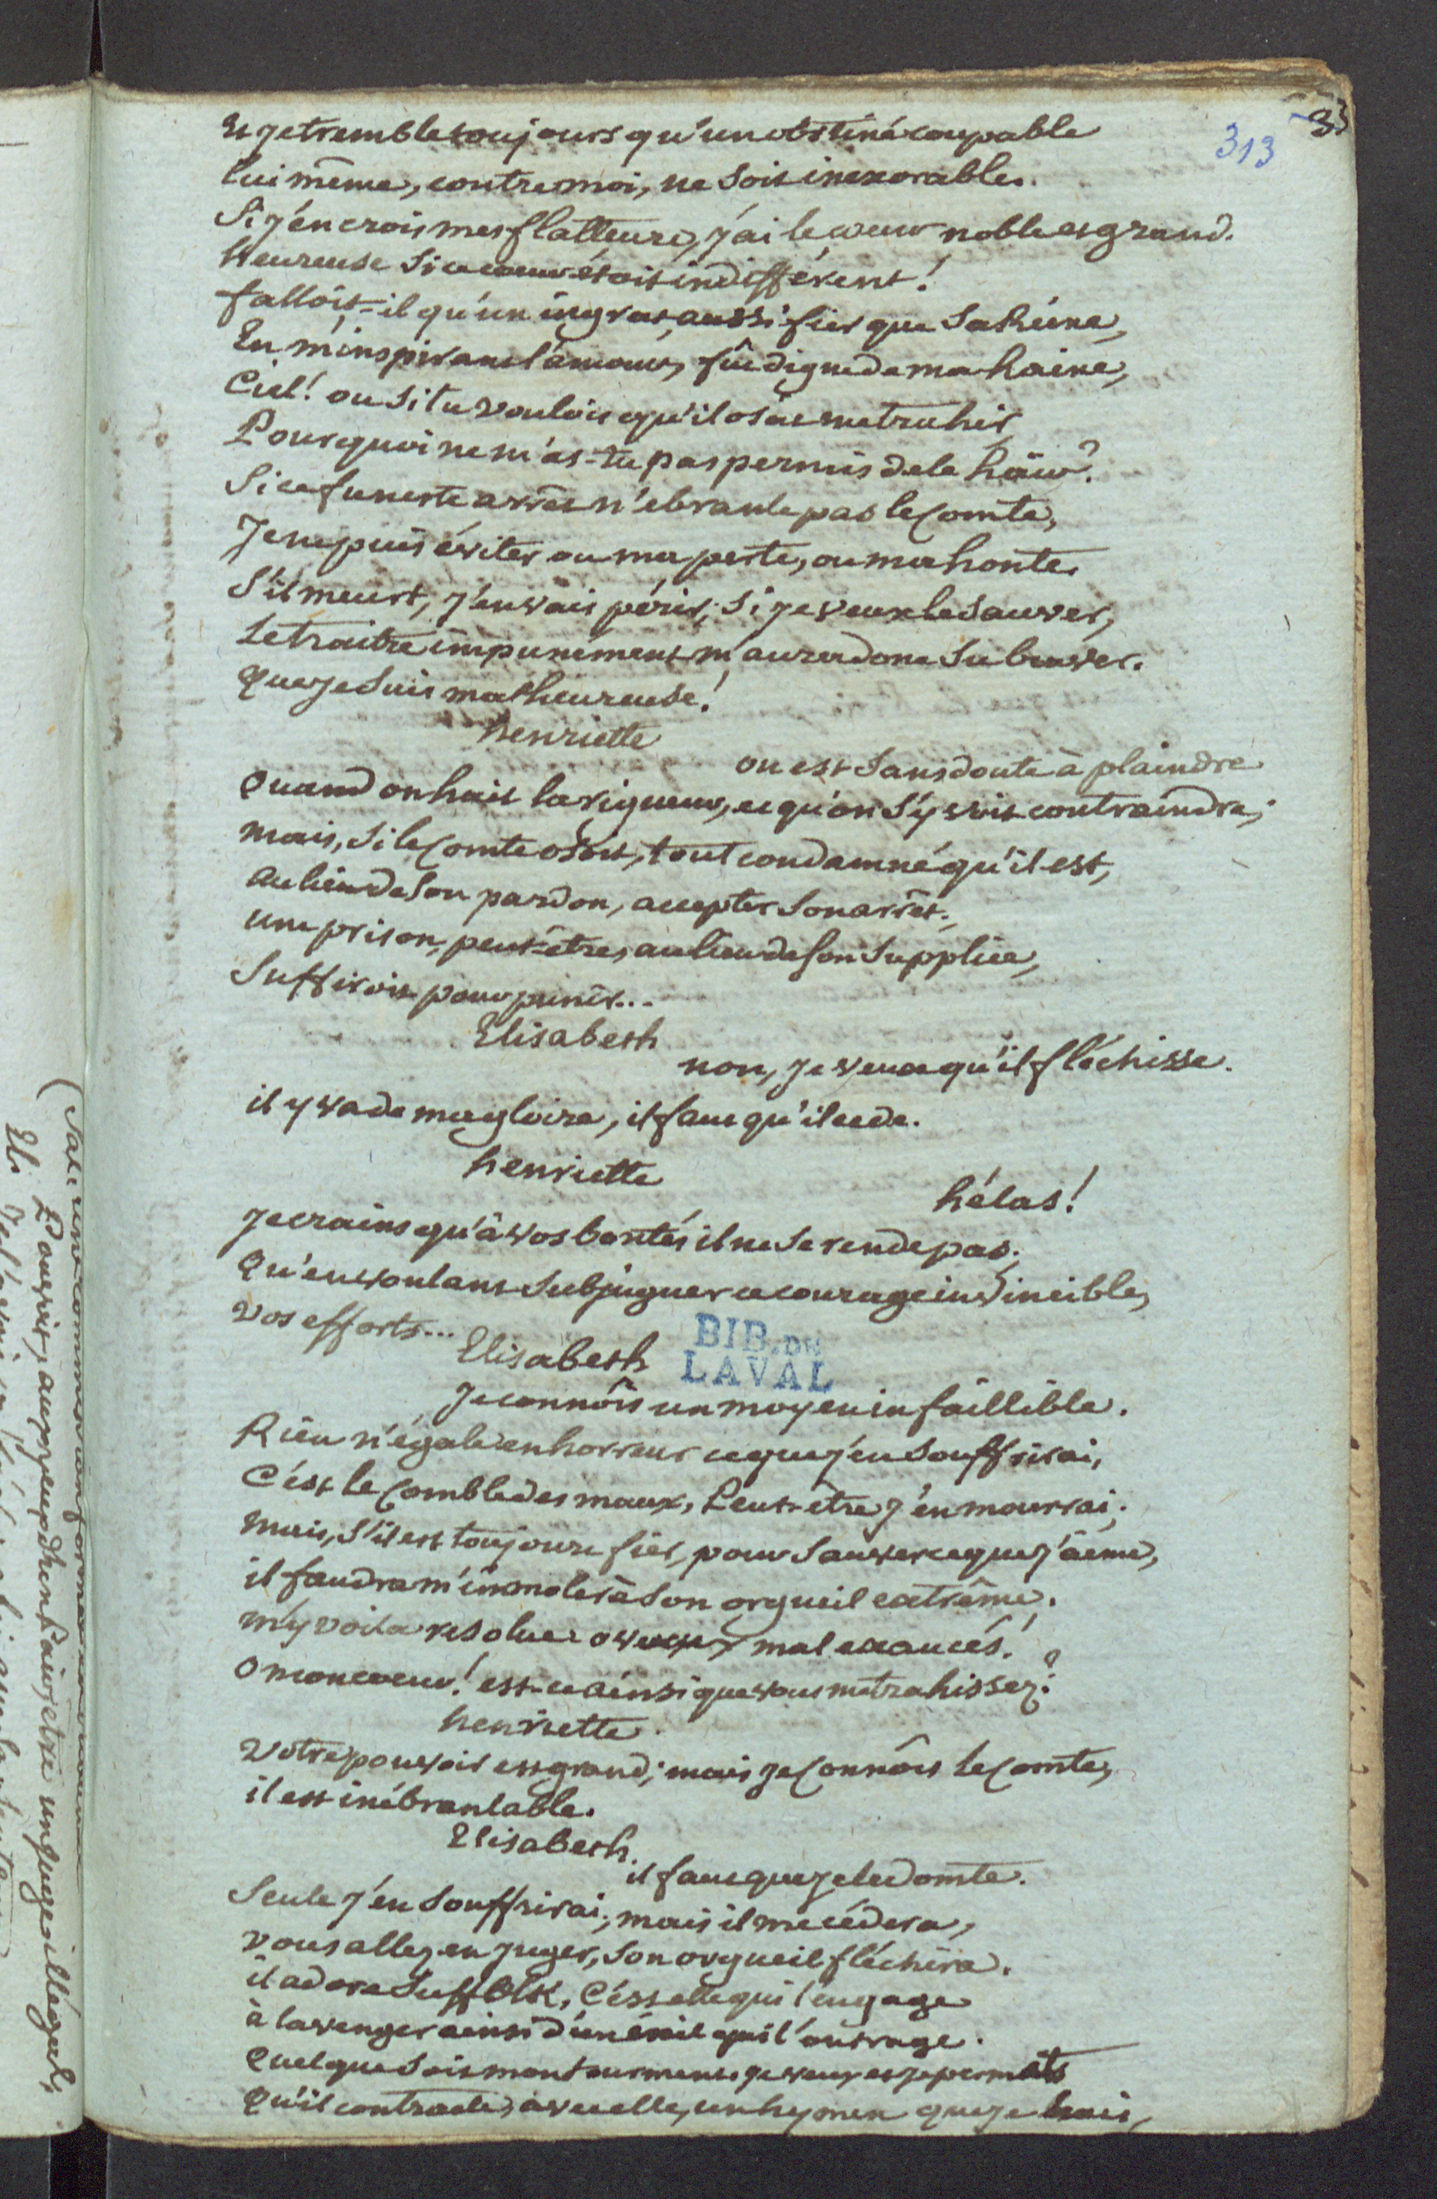 33
313
Et je tremble toujours qu'un obstiné coupable
lui même, contre moi, ne soit inexorable.
Si j'en crois mes flatteurs, j'ai le cœur noble et grand.
heureuse si ce cœur étoit indifférent!
falloit-il qu'un ingrat, aussi fier que sa Réine,
En m'inspirant l'amour, fût digne de ma haine,
Ciel! ou si tu voulois qu'il osât me trahir,
Pourquoi ne m'as-tu pas permis de le haïr?
Si ce funeste arrêt n'ebranle pas le Comte,
Je ne puis éviter ou ma perte, ou ma honte.
S'il meurt, j'en vais périr; si je veux le sauver,
Le traitre impunément m'aura donc su braver.
que je suis malheureuse!
henriette
on est sans doute à plaindre
Quand on hait la rigueur, et qu'on s'y voit contraindre;
mais, si le Comte osoit, tout condamné qu'il est,
au lieu de son pardon, accepter son arrêt,
une prison, peut-être, au lieu de son supplice,
Suffiroit pour punir...
Elisabeth
non, je veux qu'il fléchisse.
il y va de ma gloire, il faut qu'il cede.
henriette
hélas!
je crains qu'à vos bontés il ne se rende pas;
Qu'en voulant subjuguer ce courage invincible,
vos efforts...
Elisabeth
BIB. DE
LAVAL
Je connôis un moyen infaillible.
Rien n'égale en horreur ce que j'en souffrirai,
C'est le Comble des maux, Peut-etre j'en mourrai;
mais, s'il est toujours fier, pour sauver ce que j'aime,
il faudra m'immoler à son orgueil extrême.
m'y voila resolue. o vœux mal exaucés!
O mon coeur! est-ce ainsi que vous me trahissez?
henriette.
Votre pouvoir est grand; mais je Connôis le Comte,
il est inébranlable.
Elisabeth.
il faut que je le domte.
Seule j'en souffrirai; mais il me cédera,
vous allez en juger, son orgueil fléchira.
il adore Suffolk, C'est elle qui l'engage
à la venger ainsi d'un éxil qui l'outrage.
quel que soit mon tourment, je veux et je permets
Qu'il contracte, avec elle, un hymen que je hais,